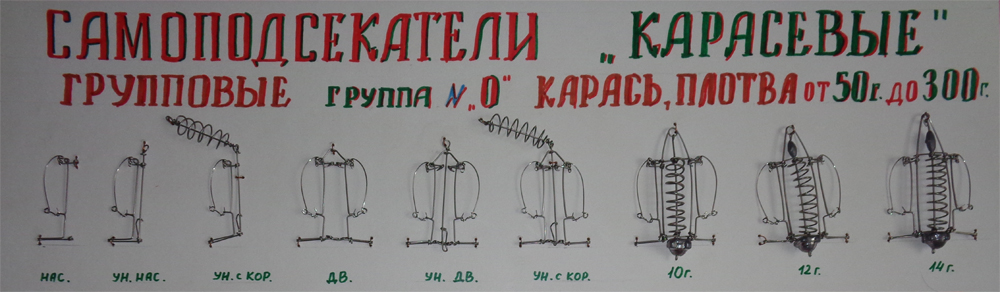 САМОПОДСЕКАТЕЛИ „КАРАСЕВЫЕ"
ГРУППОВЫЕ ГРУППА N „О" КАРАСЬ, ПЛОТВА ОТ 50г. ДО 300г.
НАС. УН. НАС. УН. С КОР. ДВ. УН. ДВ. УН. С КОР. 10г. 12г. 14г.